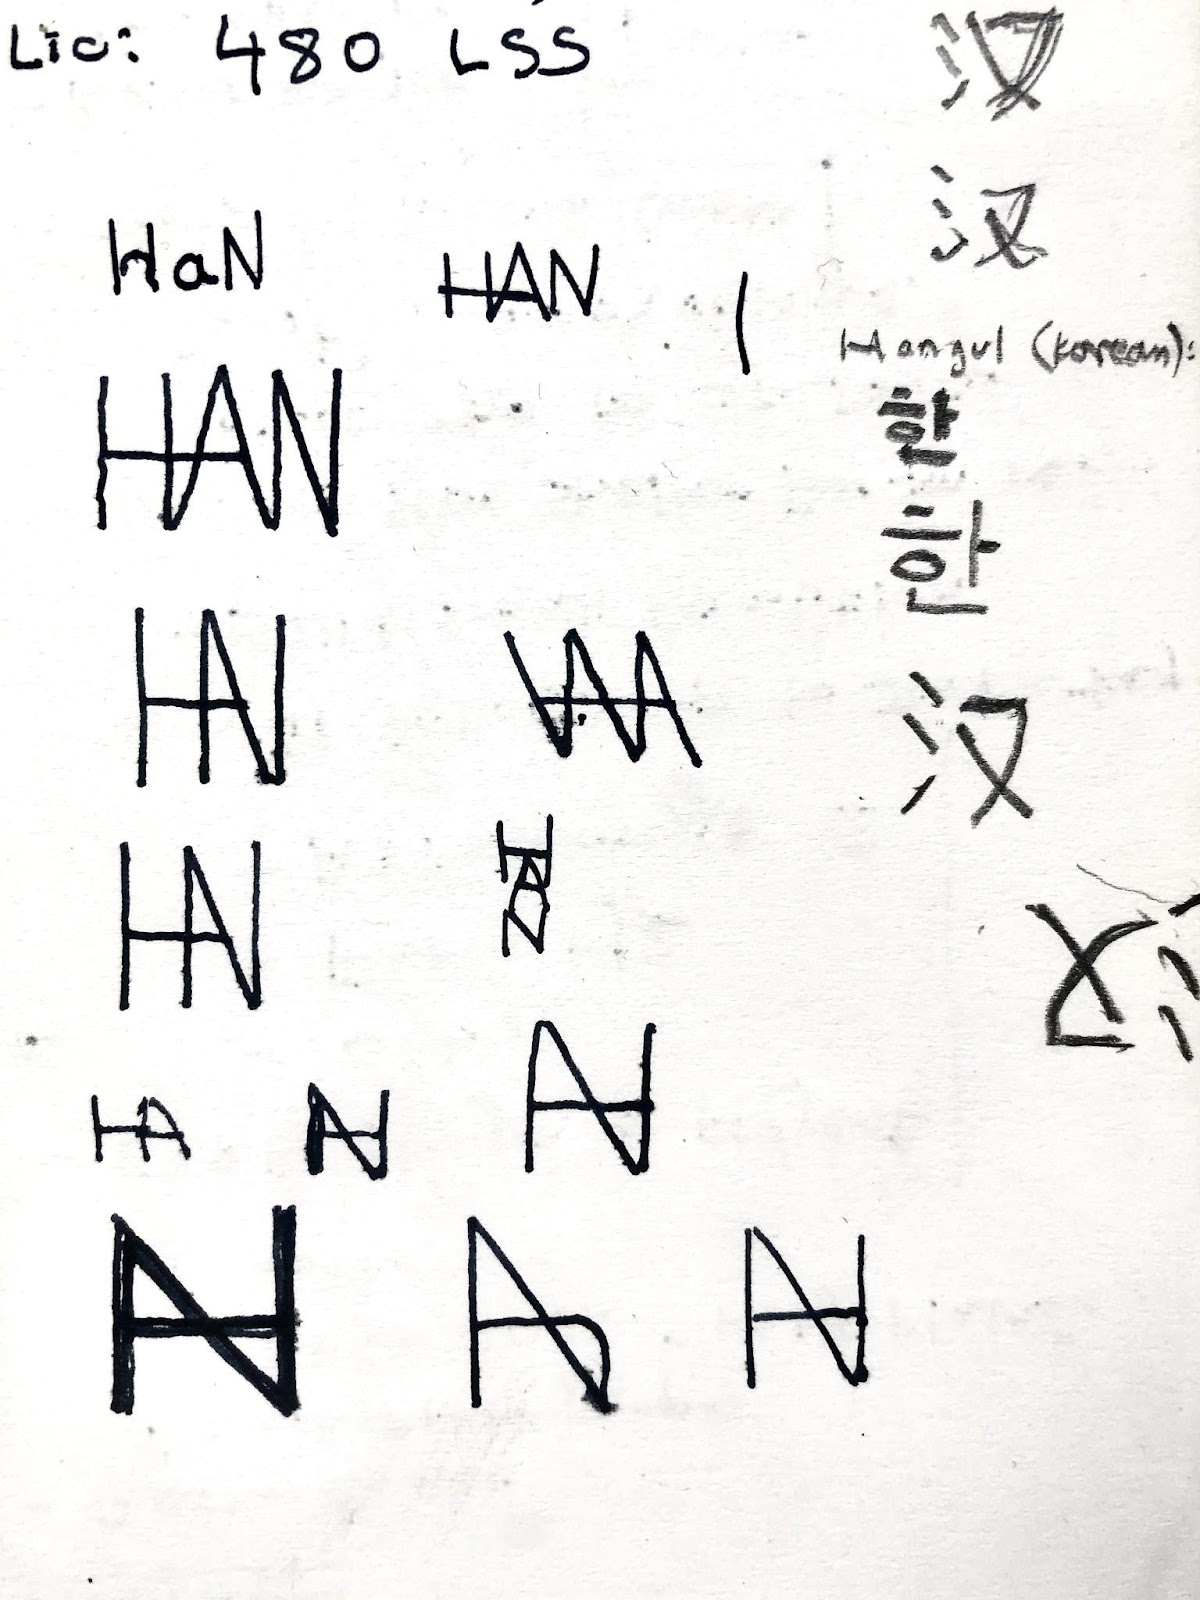 Lic: 480 LSS
汉
汉
HaN
HAN
Hangul (Korean):
HAN
한
한
HAN
汉
HAN
HAN
HA